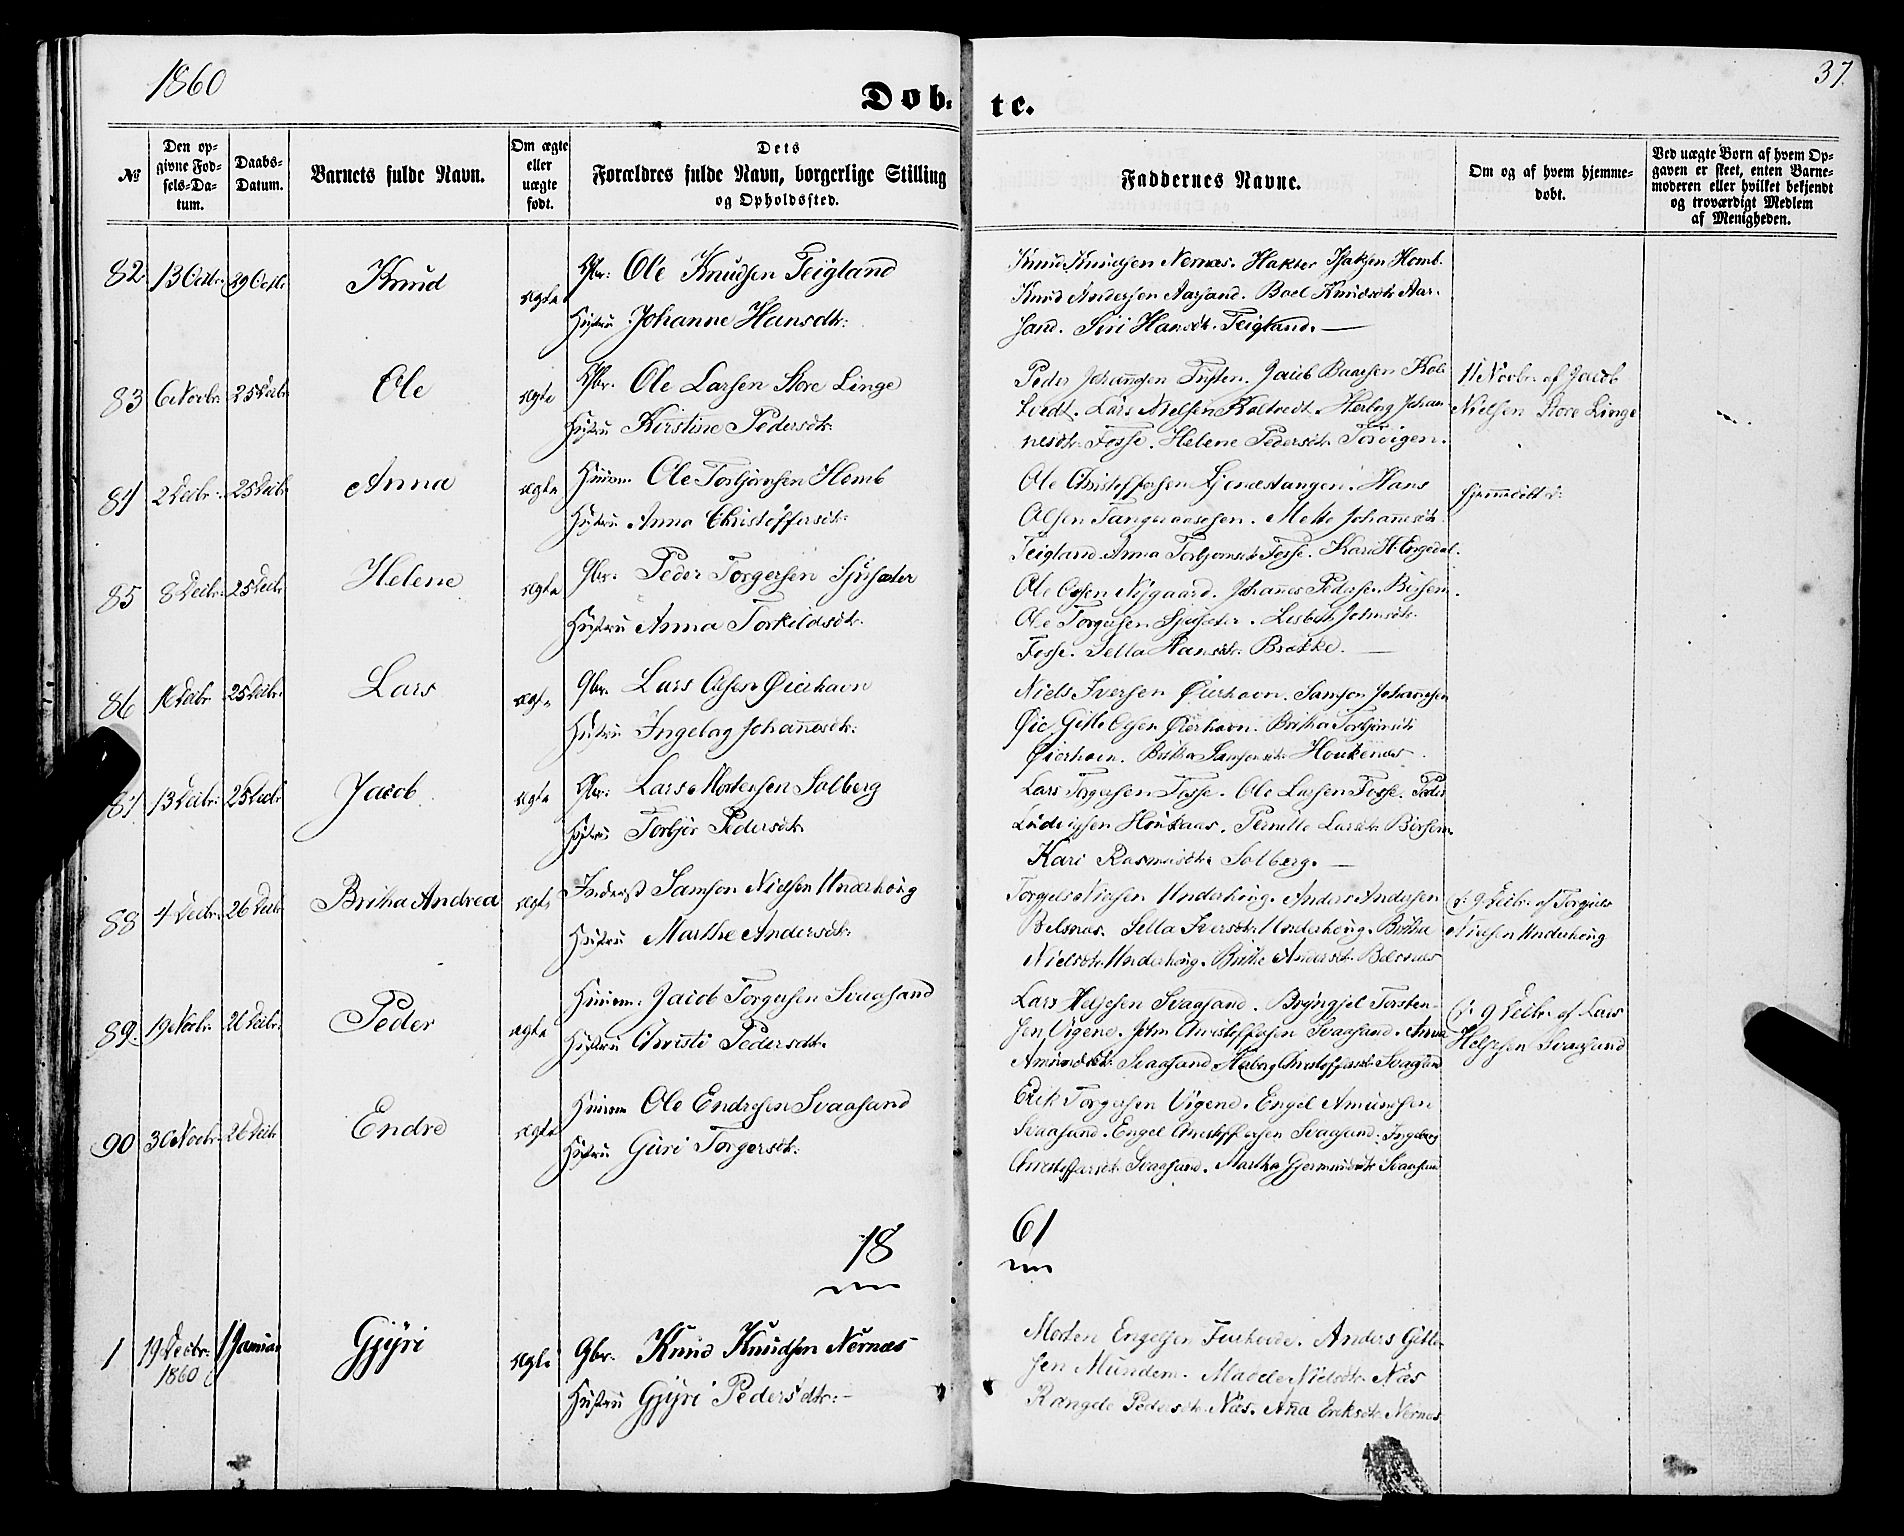 1860
37.
Dob-
te.
№
Den op-
givne Fød-
sels-Da-
tum.
Daabs-
Datum.
Barnets fulde Navn.
Om ægte
eller
uægte
født.
Dets
Forældres fulde Navn, borgerlige Stilling
og Opholdssted.
Faddernes Navne.
Om og af hvem hjemme-
døbt.
Ved uægte Born af hvem Op-
gaven er skeet, enten Barne-
moderen eller hvilket bekjendt
og troværdigt Medlem
af Menigheden.
82 13 Octbr. 29 Octbr Knud ægte Gbr: Ole Knudsen Teigland
Hustru Johanne Hansdtr:
Knud Knudsen Nernæs. Haktor Isaksen Homb.
Knud Andersen Aarsand. Boel Knudsdtr Aar-
sand. Siri Hansdtr. Teigland. —
83 6 Novbr. 25 Decbr Ole ægte Gbr. Ole Larsen Store Linge
Hustru Kirstine Pedersdtr.
Peder Johannsen Jacob Baarsen Kol-
tvedt. Lars Nielsen Koltvedt. Herborg Johan-
nesdtr. Fosse. Helene Pedersdtr.
11 Novbr. af Jacob
Nielsen Store Linge
84 2 Decbr. 25 Decbr Anna ægte Huusm. Ole Torbjørnsen Homb
Hustru Anna Christoffersdtr:
Ole Christoffersen Hans
Olsen Mette Johannesdtr.
Teigland. Anna Torbjørnsdtr. Fosse. Kari H. Engedal.
hjemmedøbt
85 8 Decbr. 25 Decbr Helene ægte Gbr. Peder Torgersen Sjusæter
Hustru Anna Torkildsdtr.
Ole Olsen Nygaard. Johannes Pedersen Birsem.
Ole Torgersen Sjusæter. Lisbeth Johnsdtr.
Fosse. Hansdtr. Brække. —
86 16 Decbr 25 Decbr. Lars ægte Gbr. Lars Olsen Øierhavn
Hustru Ingelag Johannesdtr:
Niels Iversen Øierhavn. Samson Johannesen
Øie. Gitle Olsen Øierhavn. Britha Torbjørnsdtr
Øierhavn. Britha Samsonsdtr. Houkenæs.
87. 13 Decbr. 25 Decbr Jacob ægte Gbr: Lars Mortensen Solberg
Hustru Torbjør Pedersdtr.
Lars Torgersen Fosse. Ole Larsen Fosse. Peder
Ludvigsen Houkaas. Pernille Larsdtr. Birsem.
Kari Rasmusdtr Solberg. —
88 4 Decbr. 26 Decbr Britha Andrea ægte Inderst Samson Nielsen Underhoug
Hustru Marthe Andersdtr.
Torgiuls Nielsen Underhoug. Anders Andersen
Belsnæs. Sella Iversdtr. Underhoug. Britha
Nielsdtr. Underhoug. Britha Andersdtr. Belsnæs
d: 9 Decbr. af Torgiuls
Nielsen Underhoug
89. 19 Novbr. 26 Decbr. Peder ægte Huusm. Jacob Torgersen Svaasand
Hustru Christi Pedersdtr.
Lars Helgesen Svaasand. Brÿngjel Torsten-
sen Vigene. John Christoffersen Svaasand. Anna
Amundsdtr. Svaasand. Herborg Christoffersdtr Svaasand
d: 9 Decbr. af Lars
Helgesen Svaasand
90 30 Novbr. 26 Decbr Endre ægte Huusm Ole Endresen Svaasand
Hustru Guri Torgersdtr.
Erik Torgersen Vigene. Engel Amundsen
Svaasand. Engel Christoffersen Svaasand. Ingeborg
Christoffersdtr Svaasand. Martha Gjermundsdtr Svaasand
18
61
1 19 Decbr. 1 Januar Gjÿri ægte Gbr. Knud Knudsen Nernæs
1860
Hustru Gjÿri Pedersdtr. -
Morten Engelsen Anders Gitle-
sen Mundem. Madele Nielsdtr. Næs
Rangele Pedersdtr. Næs. Anna Eriksdtr. Nernæs